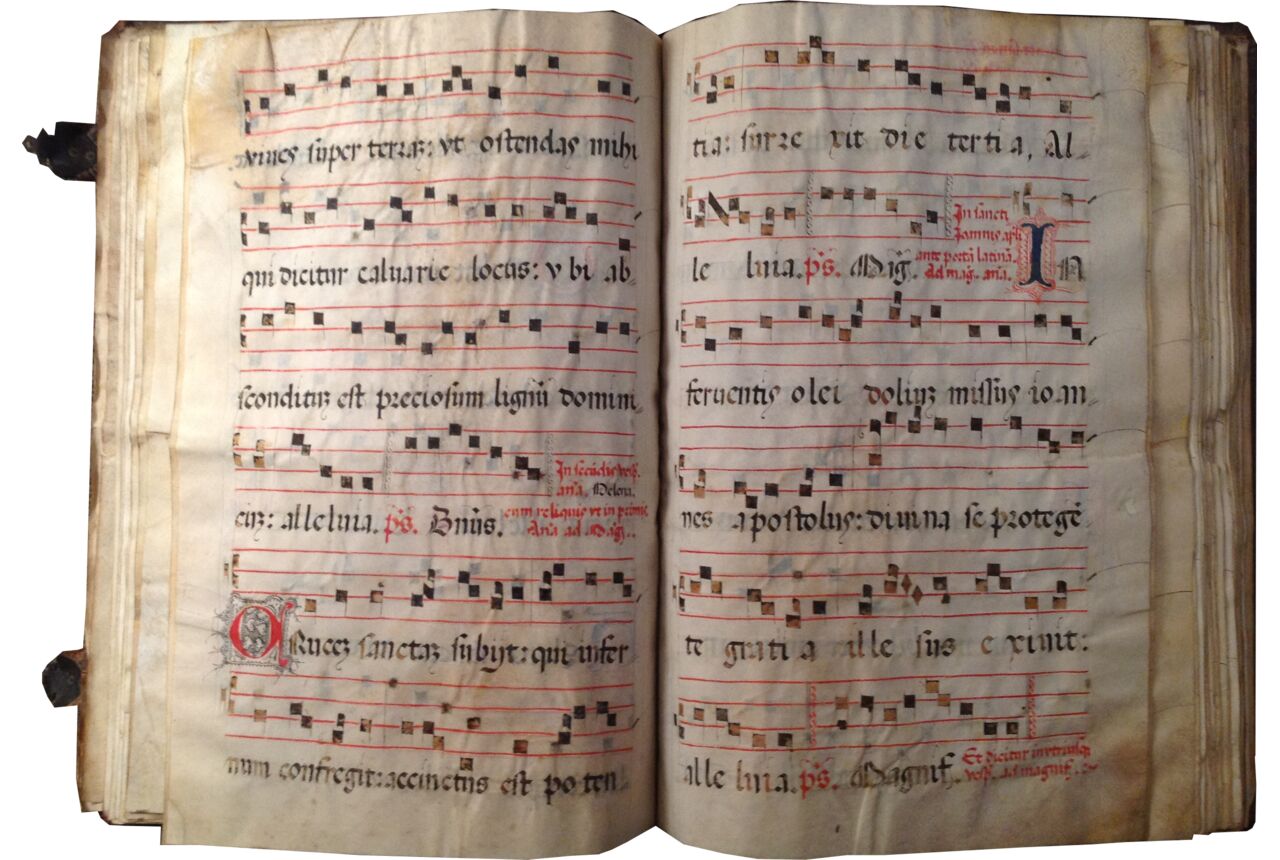 viues super terraz: vt ostendas mihi
qui dicitur caluarie locus: v bi ab-
scondituz est preciosum lignū domini-
cuz: alleluia. ps. Bn̄us.
In secūdis vesp.
an̄a.
cum reliquis vt in primis
An̄a ad Mag̃.
CRucez sanctaz subijt: qui infer
num confregit: accinctus est po ten-
tia: surre xit die terti a, Al-
le luia. ps. Mag̃.
In sancti
Joannis apl̄i
ante portā latinā.
ad mag̃. an̄a.
IN
feruentis olei doliuz missus io an-
nes apostolus: diuina se protegē-
te grati a ille sus e xiuit:
alle luia. ps. Magnif.
Et dicitur in vtrisq;
vesp. ad magnif.